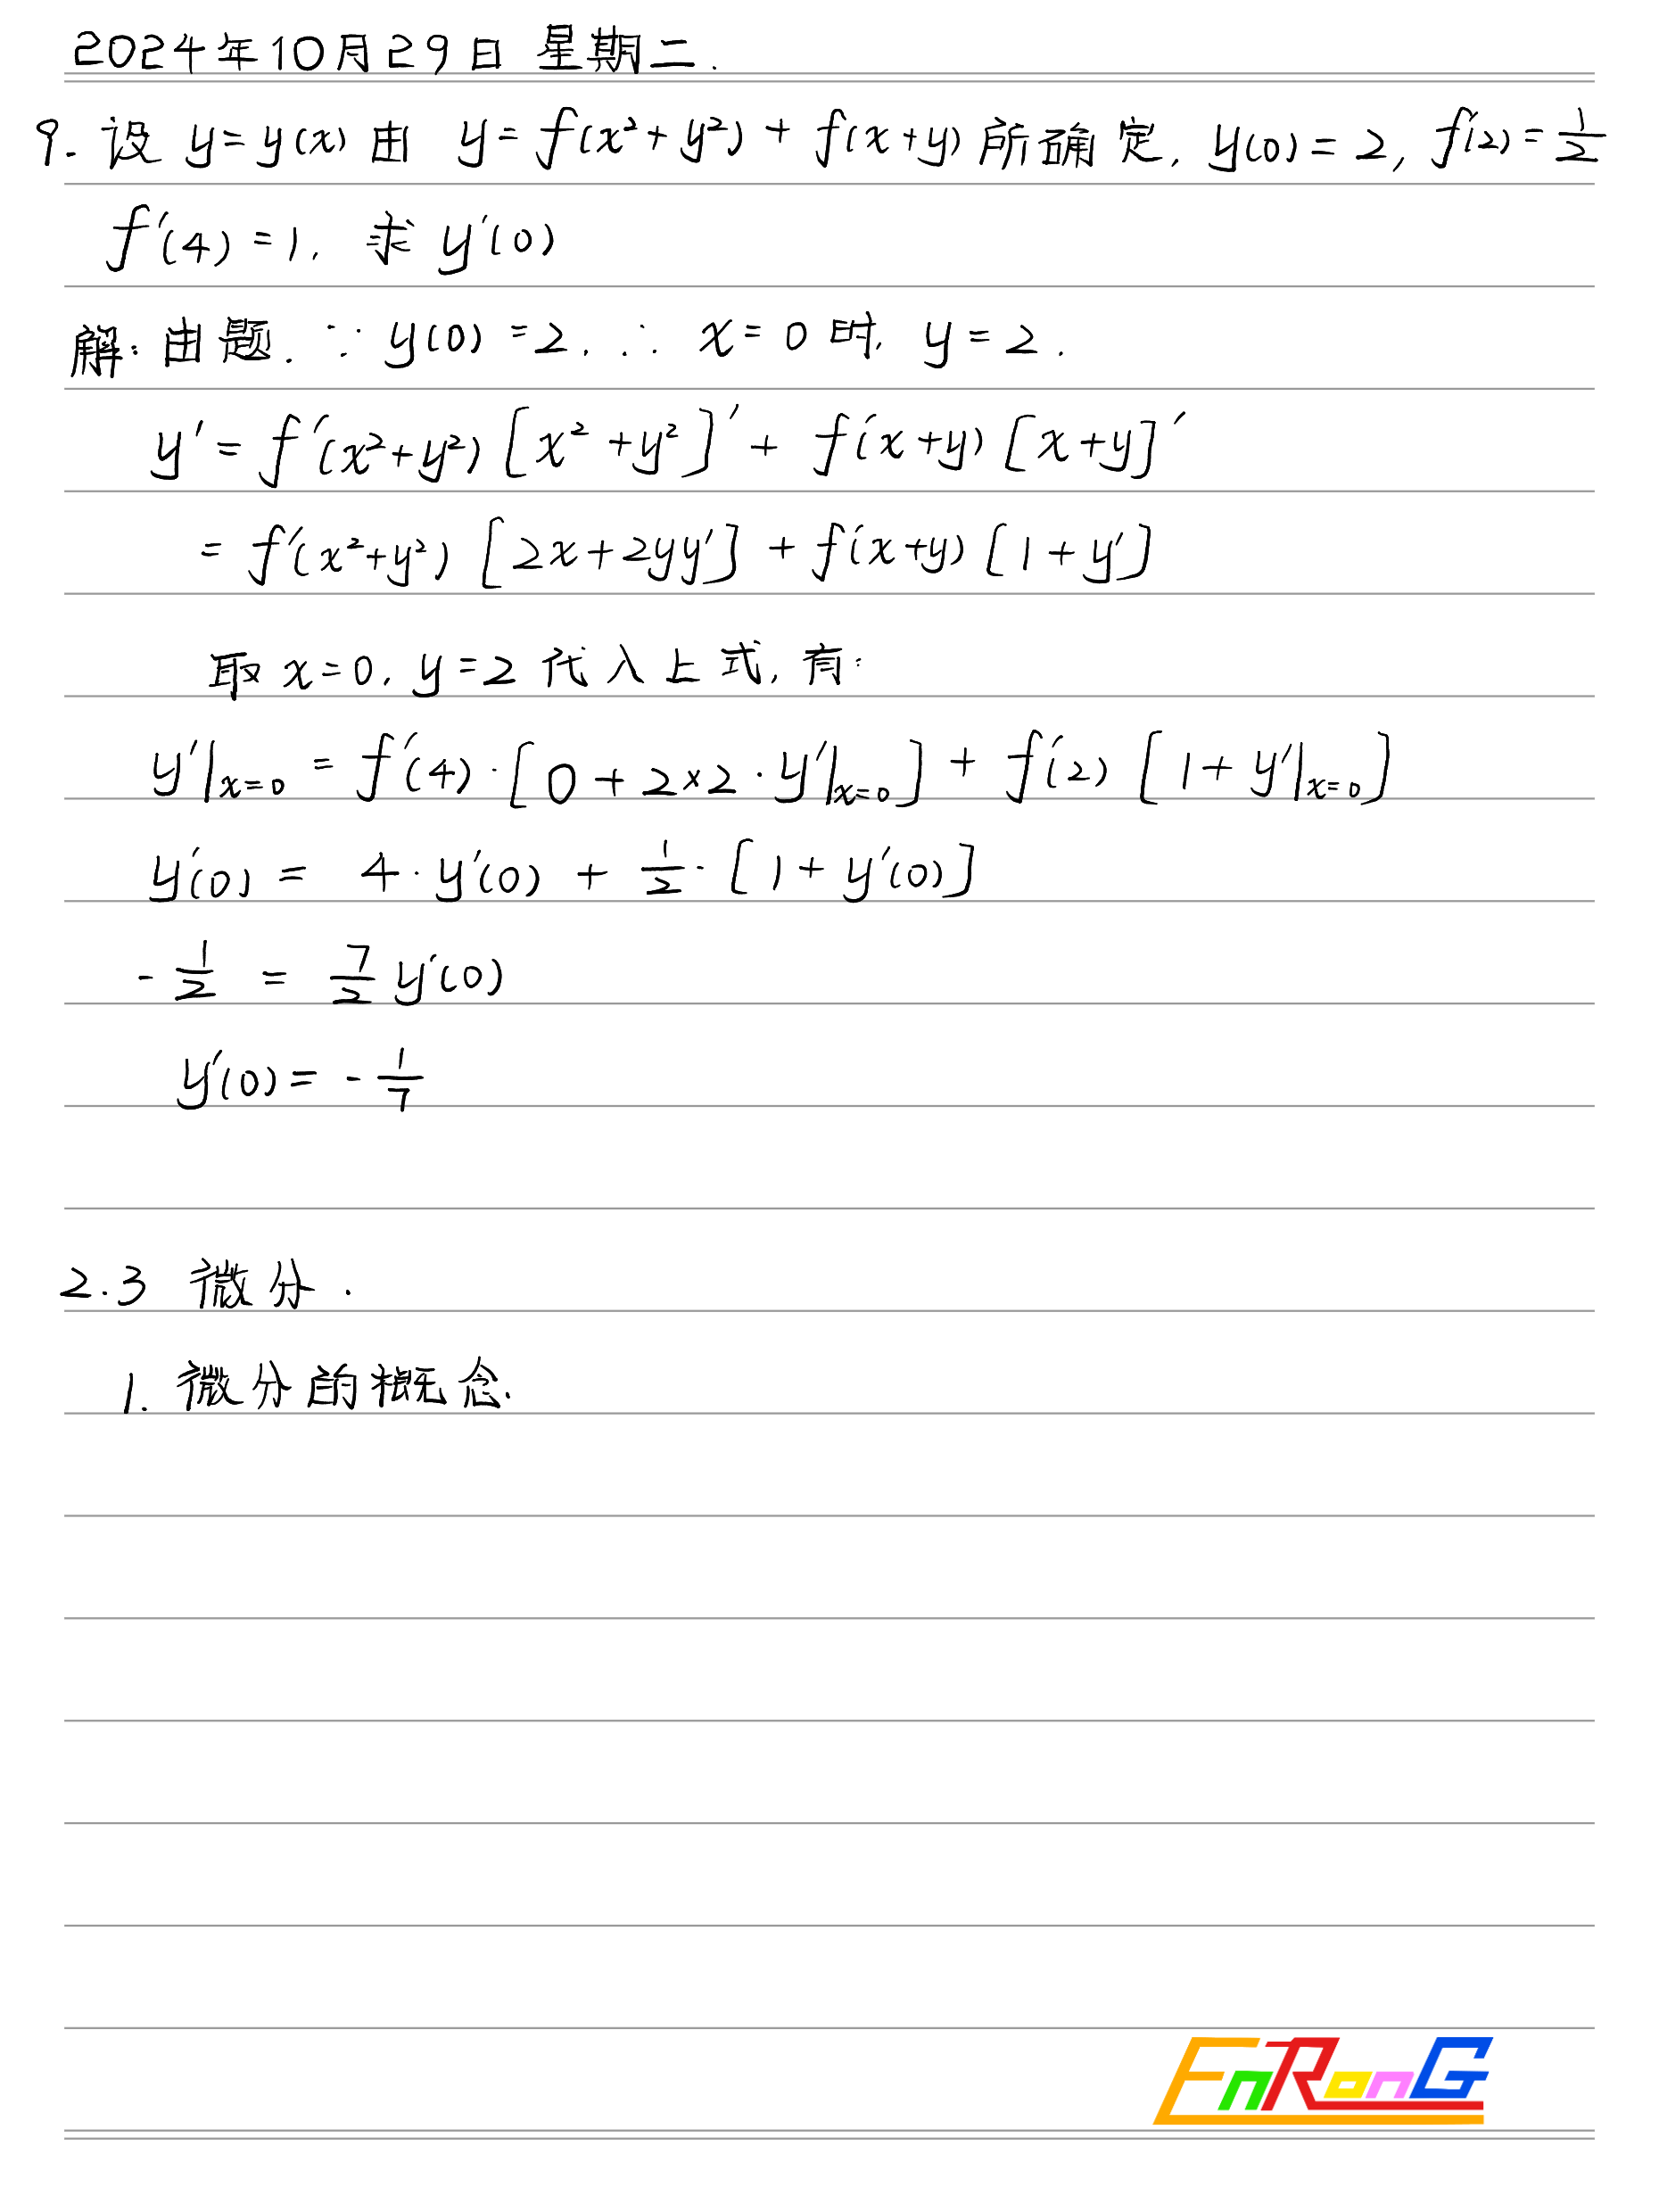 2024年10月29日 星期二.
9. 设 y=y(x) 由 y=f(x²+y²)+f(x+y) 所确定, y(0)=2, f'(2)=1/2
f'(4)=1, 求 y'(0)
解: 由题. ∵ y(0)=2, ∴ x=0 时, y=2.
y'=f'(x²+y²)[x²+y²]'+f'(x+y)[x+y]'
=f'(x²+y²)[2x+2yy']+f'(x+y)[1+y']
取 x=0, y=2 代入上式, 有:
y'|x=0 = f'(4)·[0+2×2·y'|x=0]+f'(2)[1+y'|x=0]
y'(0) = 4·y'(0)+1/2·[1+y'(0)]
-1/2 = 7/2 y'(0)
y'(0)=-1/7
2.3 微分.
1. 微分的概念.
EnRonG